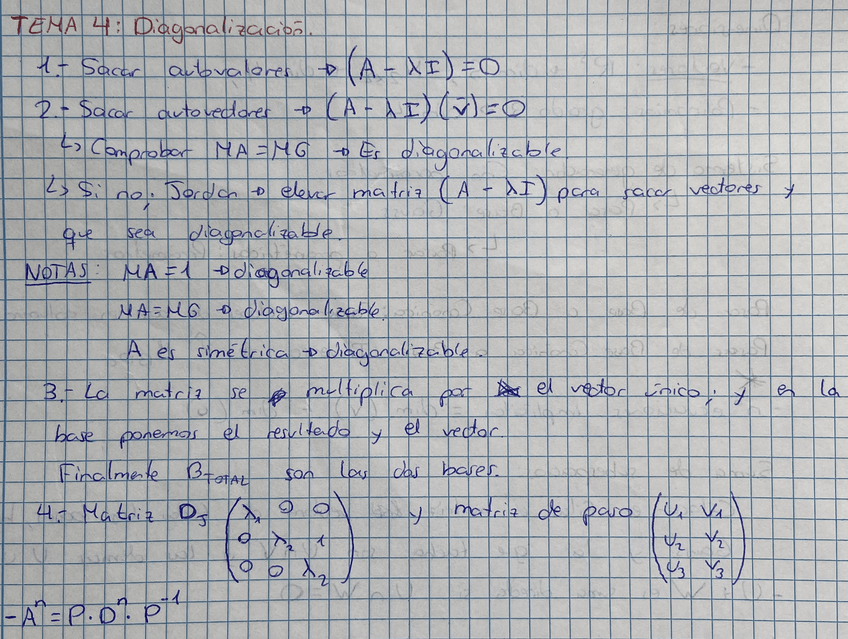 TEMA 4: Diagonalización.
1.- Sacar autovalores → (A - λI) = 0
2.- Sacar autovectores → (A - λI)(v̄) = 0
↳ Comprobar MA = MG → Es diagonalizable.
↳ Si no; Jordan → elevar matriz (A - λI) para sacar vectores y
que sea diagonalizable.
NOTAS: MA = 1 → diagonalizable
MA = MG → diagonalizable.
A es simétrica → diagonalizable.
3.- La matriz se multiplica por el vector único; y en la
base ponemos el resultado y el vector.
Finalmente B_TOTAL son las dos bases.
4.- Matriz D_J (λ₁ 0 0 y matriz de paso (v₁ v₁
0 λ₂ 1 v₂ v₂
0 0 λ₂) v₃ v₃)
- Aⁿ = P · Dⁿ · P⁻¹